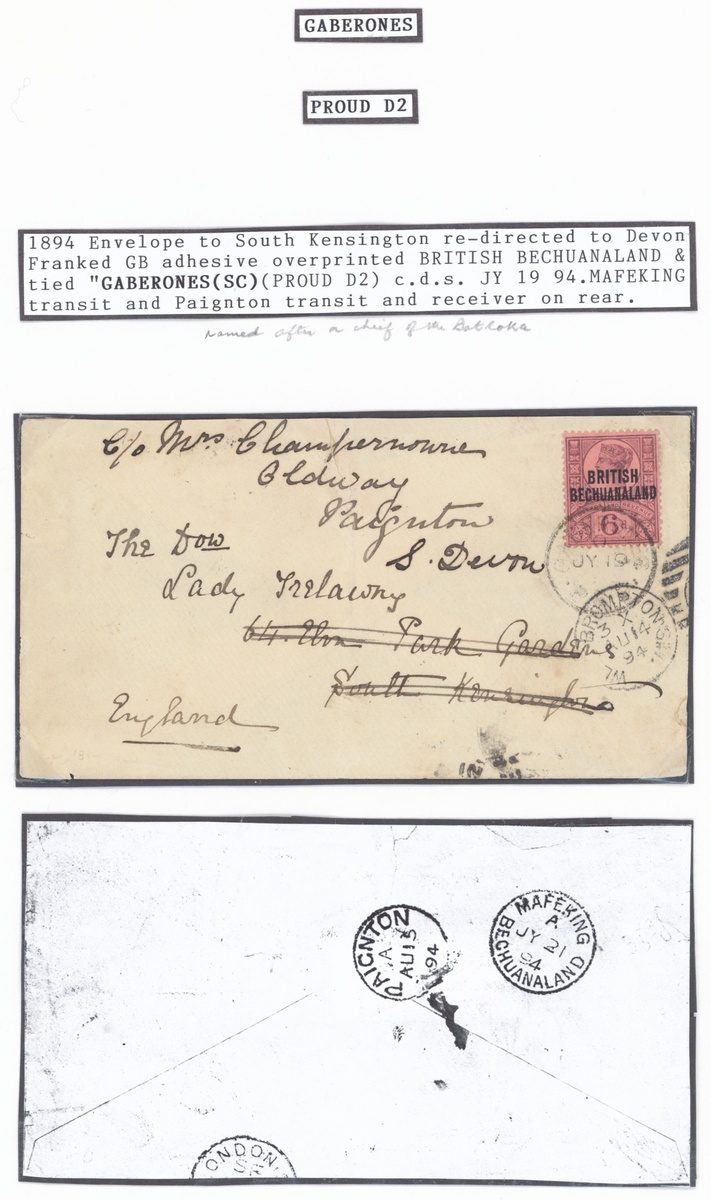 GABERONES
PROUD D2
1894 Envelope to South Kensington re-directed to Devon
Franked GB adhesive overprinted BRITISH BECHUANALAND &
tied "GABERONES(SC)(PROUD D2) c.d.s. JY 19 94.MAFEKING
transit and Paignton transit and receiver on rear.
named after a chief of the Batloka
C/o Mrs Champernowne
Oldway
Paignton
S. Devon
The Dow
Lady Trelawny
64. Elm Park Gardens
South Kensington
England
BRITISH
BECHUANALAND
6
JY 19
BROMPTON
X
AU 14
94
7M
PAIGNTON
A
AU 15
94
MAFEKING
A
JY 21
94
BECHUANALAND
ONDON